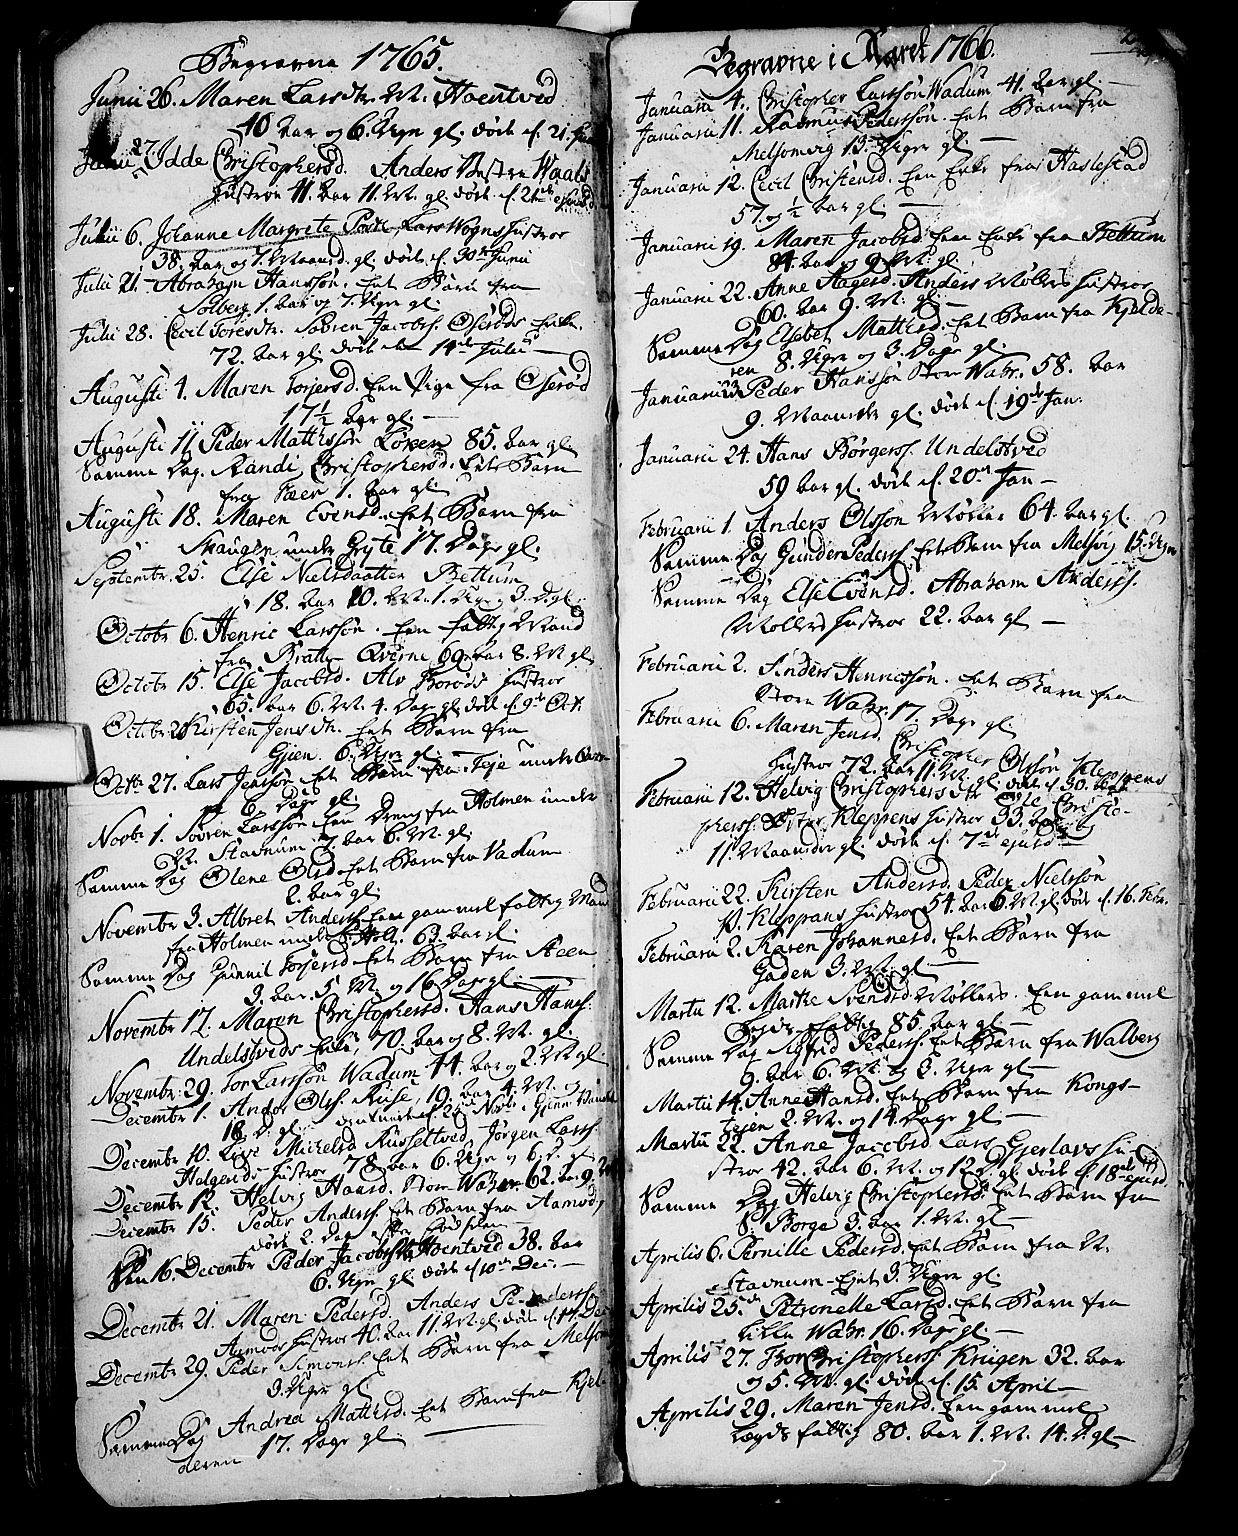 Begravne 1765.
Junii 26. Maren Larsdtr. V. Hoentved
40 Aar og 6. Uger gl. döde d. 21. Jun
Junii 27. Idde Christophersd. Anders Westre Waals
Hustroe 41. Aar 11. M. gl. döde d. 21de ejusd
Julii 6. Johanne Margrete Lars Wogns Hustroe
38. Aar og 7. Maand. gl. döde d. 30te Junii
Julii 21. Abraham Hanssön. Eet Barn fra
Solberg 1. Aar og 7. Uger gl.
Julii 28. Cecil Toresdtr. Sören Jacobss. Oseröds Enke.
72. Aar gl. döde den 14de Julii
Augusti 4. Maren Torjersd. Een Pige fra Oseröd
17½ Aar gl.
Augusti 11. Peder Mathissön Löven 85. Aar gl
Samme Dag. Randi Christophersd. Eet Barn
fra Fæen 1. Aar gl.
Augusti 18. Maren Evensd. Eet Barn fra
Skaugen under Gryte 17. Dage gl.
Septembr. 25. Else Nielsdaatter Bettum
18. Aar 10. M. 1. Uge 3. D. gl.
Octobr 6. Henric Larssön. Een fattig Mand
fra Bratte Qverne 69 Aar 8. M gl.
Octobr 15. Else Jacobsd. Alv Boröds Hustroe
65. Aar 6. M. 4. Dage gl. döde d. 9de Oct.
Octobr 20 Kirsten Jensdtr. Eet Barn fra
Gjien. 6. Uger gl.
Octbr 27. Lars Jenssön Eet Barn fra Teje under
6. Dage gl.
Novbr 1. Sövren Larssön Een Dreng fra Holmen under
V. Stavnum 7. Aar 6. M. gl.
Samme Dag Olene Olsd. Eet Barn fra Vadum
2. Aar gl.
Novembr 3. Albret Anderss. Een gammel fattig Mand
fra Holmen under Holt. 63. Aar gl.
Samme Dag Gunnil Torjersd. Eet Barn fra Fæen
3. Aar. 5 M. og 16 Dage gl.
Novembr 17. Maren Christophersd. Hans Hanss.
Undelstveds Enke, 70. Aar og 8. M. gl.
Novembr. 29. Tor Larssön Wadum 44. Aar og 2. M. gl.
Decembr 1. Andor Olss. Ruse, 19. Aar 4. M. og
18 D. gl.
Decembr 10. Live Michelsd. Russeltved Jörgen Larss.
Holgerds Hustroe 78. Aar 6. Uger og 6. D. gl
Decembr 12. Helvig Haarsd. Store Wahr 62. Aar 9.
Decembr 15. Peder Anderss. Eet Barn fra Aamodt
döde 2. Dage efter Födselen
Den 16. Decembr Peder Jacobss. V. Hoentved 38. Aar
6. Uger gl. döde d. 10de Dec.
Decembr 21. Maren Pedersd. Anders Pederssön
Aamods Hustroe 40. Aar 11. M. gl. döde d. 14. Dec
Decembr 29. Peder Simons. Eet Barn fra Melsom
3. Uger gl
Samme Dag Andrea Mathisd. Eet Barn fra Kjel-
deren 17. Dage gl.
Begravne i Aaret 1766.
Januarii 4. Christopher Larssön Wadum 41. Aar gl.
Januarii 11. Rasmus Pederssön. Eet Barn fra
Melsomvig 13. Uger gl
Januarii 12. Cecil Christensd. Een Enke fra Haslestad
57. og ½ Aar gl.
Januarii 19. Maren Jacobsd. Een Enke fra Bettum
84. Aar og 9. M. gl.
Januarii 22. Anne Aagesd. Anders Möllers Hustroe
60. Aar 9. M. gl.
Samme Dag Elsebet Mathisd. Eet Barn fra Kjelde-
ren 8. Uger og 3. Dage gl.
Januarii 23 Peder Hanssön Store Wahr. 58. Aar
9. Maaneder gl. döde d. 19de Jan:
Januarii 24. Hans Börgerss. Undelstved
59 Aar gl. döde d. 20de Jan
Februarii 1. Anders Olssön Möller 64. Aar gl.
Samme Dag Gunder Pederss. Eet Barn fra Melsvig 15. Uger
Samme Dag Else Evensd. Abraham Anderss.
Möllers Hustroe 22. Aar gl
Februarii 2. Anders Henricssön. Eet Barn fra
Store Wahr. 17. Dage gl.
Februarii 6. Maren Jensd. Christopher Olssön Kleppens
Hustroe 72. Aar 11. M. gl. döde d. 30.
Februarii 12. Helvig Christophersdtr Ole Christo-
phers. Kleppens Hustroe 33. Aar og
11. Maaneder gl. döde d. 7de ejusd
Februarii 22. Kirsten Andersd. Peder Nielssön
V. Kleppens Hustroe 54. Aar 6. M. gl. döde d. 16. Febr.
Februarii 2. Karen Johannesd. Eet Barn fra
Gaden 3. M. gl
Martii 12. Marthe Svendsd. Möllers. Een gammel
Legds-Fattig 85. Aar gl.
Samme Dag Sigfrid Pederss. Eet Barn fra Walberg
9. Aar 6. M. og 3. Uger gl
Martii 14. Anne Hansd. Eet Barn fra Kongs-
tejen 2. M. og 14. Dage gl
Martii 22. Anne Jacobsd Lars Gjerlavs Hu-
stroe 42. Aar 6. M. og 12 D. gl. döde d. 18de ejusd.
Samme Dag Helvig Christophersd. Eet Barn fra
S. Borge 3. Aar 1. M. gl
Aprilis 6. Pernille Pedersd. Eet Barn fra V.
Stavnum-Ejet 3. Uger gl.
Aprilis 25de Petronelle Larsd. Eet Barn fra
Lille Wahr. 16. Dage gl.
Aprilis 27. Tor Christopherss. Krügen 32. Aar
og 5. M. gl. döde d. 15. April
Aprilis 29. Maren Jensd. Een gammel
Legds fattig 80. Aar 1. M. 14. D. gl